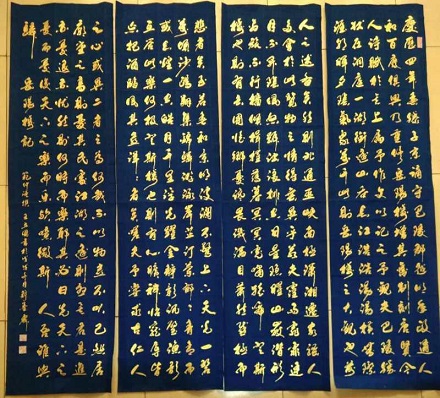 慶曆四年春滕子京謫守巴陵郡越明年政通人
和百廢俱興乃重修岳陽樓增其舊制刻唐賢今
人詩賦於其上屬予作文以記之予觀夫巴陵勝
狀在洞庭一湖銜遠山吞長江浩浩湯湯橫無際
涯朝暉夕陰氣象萬千此則岳陽樓之大觀也前
人之述備矣然則北通巫峽南極瀟湘遷客騷人
多會於此覽物之情得無異乎若夫霪雨霏霏連
月不開陰風怒號濁浪排空日星隱曜山岳潛形
商旅不行檣傾楫摧薄暮冥冥虎嘯猿啼登斯
樓也則有去國懷鄉憂讒畏譏滿目蕭然感極而
悲者矣至若春和景明波瀾不驚上下天光一碧
萬頃沙鷗翔集錦鱗游泳岸芷汀蘭郁郁青青
或長煙一空皓月千里浮光躍金靜影沉璧漁歌
互答此樂何極登斯樓也則有心曠神怡寵辱皆
忘把酒臨風其喜洋洋者矣嗟夫予嘗求古仁人
之心或異二者之為何哉不以物喜不以己悲居
廟堂之高則憂其民處江湖之遠則憂其君是進
亦憂退亦憂然則何時而樂耶其必曰先天下之
憂而憂後天下之樂而樂歟噫微斯人吾誰與
歸 岳陽樓記
范仲淹撰